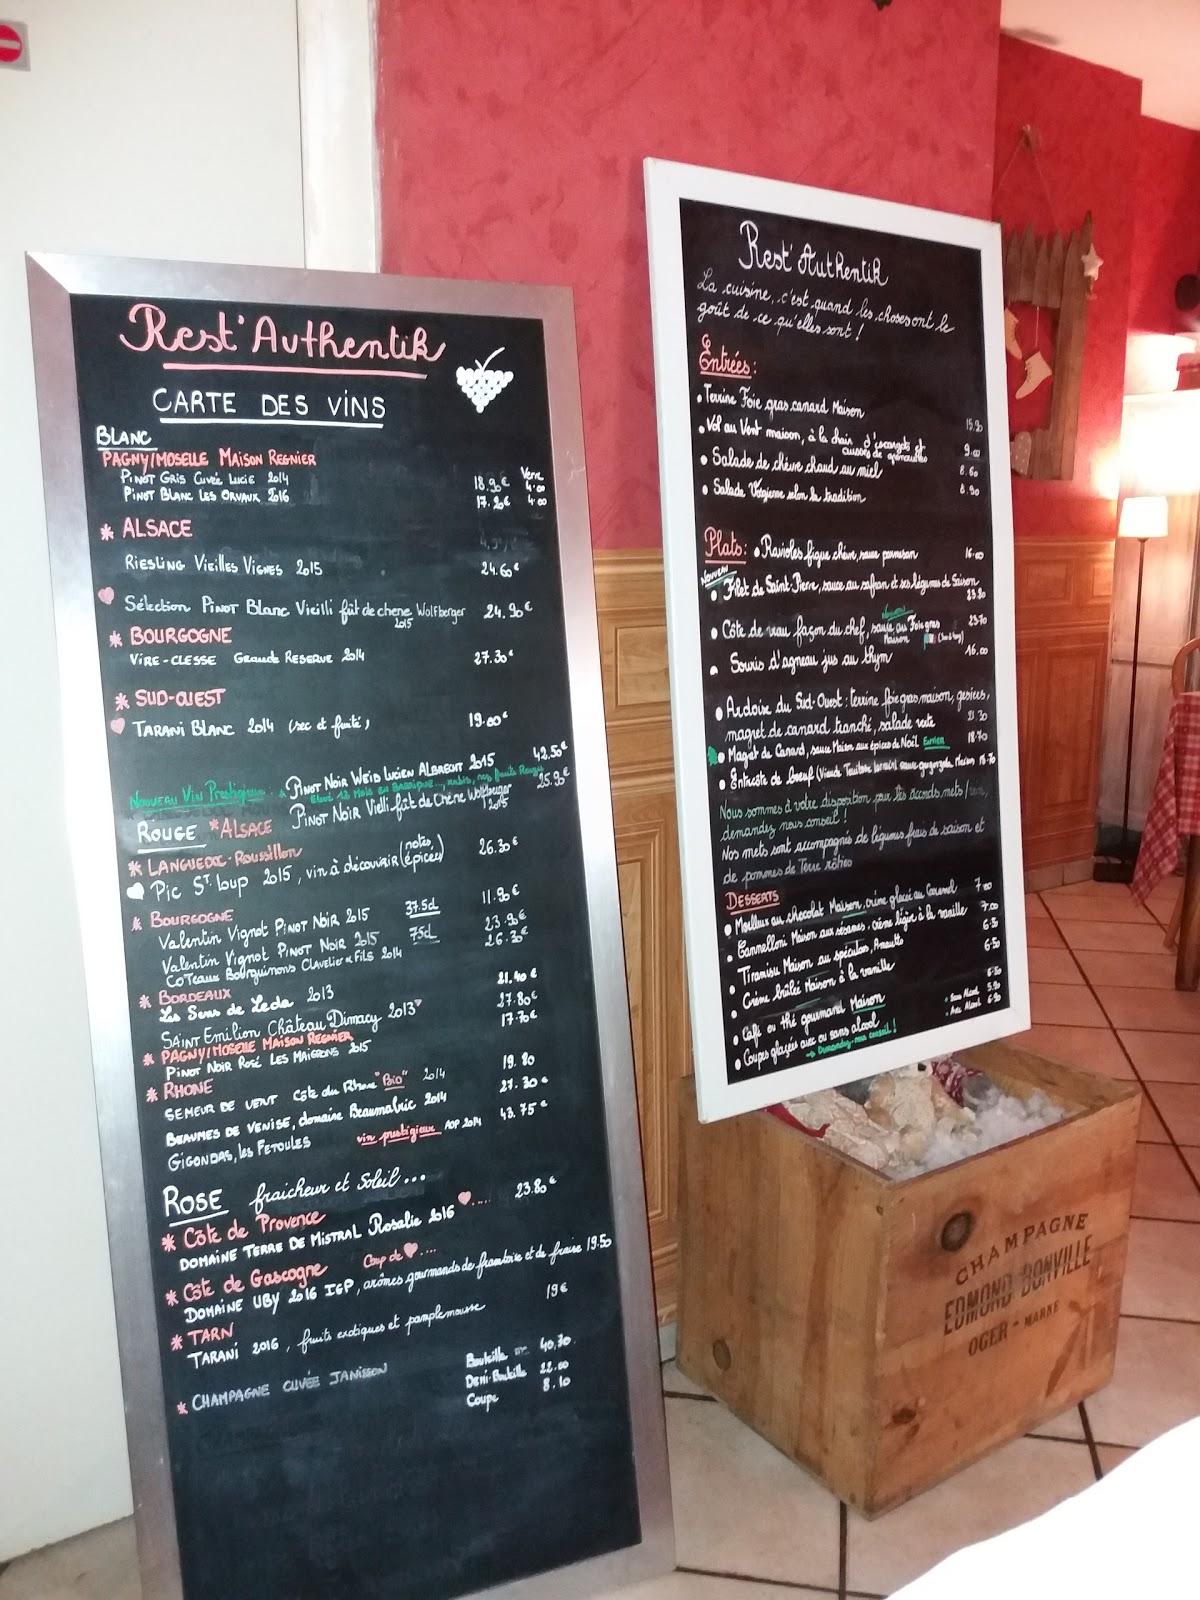 Rest'Authentik
CARTE DES VINS
BLANC
PAGNY/MOSELLE MAISON REGNIER
Verre
PINOT GRIS CUVÉE LUCIE 2014 18.90€ 4.00
PINOT BLANC LES ORVAUX 2016 17.20€ 4.00
* ALSACE
RIESLING VIEILLES VIGNES 2015 24.60€
Sélection PINOT BLANC Vieilli fût de chene Wolfberger 24.90€
2015
* BOURGOGNE
VIRE-CLESSE GRANDE RESERVE 2014 27.30€
* SUD-OUEST
TARANI BLANC 2014 (sec et fruité) 19.00€
NOUVEAU VIN Prestigieux PINOT NOIR WEID LUCIEN ALBRECHT 2015 42.50€
ROUGE *ALSACE PINOT NOIR Vielli fût de Chêne Wolfberger 25.95€
2015
* LANGUEDOC-Roussillon
PIC ST loup 2015, vin à découvrir (notes épicées) 26.30€
* BOURGOGNE
Valentin Vignot PINOT NOIR 2015 37.5cl 11.90€
Valentin Vignot PINOT NOIR 2015 75cl 23.90€
COTEAUX BOURGUIGNONS CLAVELIER & FILS 2014 26.30€
* BORDEAUX
Les Sens de Leda 2013 21.40€
SAINT EMILION CHÂTEAU DIMACY 2013 27.80€
* PAGNY/MOSELLE MAISON REGNIER
PINOT NOIR ROSÉ LES MAIGRONS 2015 17.70€
* RHONE
SEMEUR DE VENT Côte du Rhone "Bio" 2014 19.80
BEAUMES DE VENISE, domaine Beaumalric 2014 27.30€
GIGONDAS, les FETOULES vin prestigieux AOP 2014 43.75€
ROSE fraicheur et soleil...
* Côte de Provence
DOMAINE TERRE DE MISTRAL Rosalie 2016 23.80€
* Côte de Gascogne Coup de ....
DOMAINE UBY 2016 IGP, arômes gourmands de framboise et de fraise 19.50
* TARN
TARANI 2016, fruits exotiques et pamplemousse 19€
* CHAMPAGNE CUVÉE JANISSON Bouteille 40.30
Demi-Bouteille 22.00
Coupe 8.10
Rest'Authentik
La cuisine, c'est quand les choses ont le
goût de ce qu'elles sont !
Entrées:
• Terrine Foie gras canard Maison 15.90
• Vol au Vent maison, à la chair d'escargots et
cuisses de grenouilles 9.00
• Salade de chèvre chaud au miel 8.60
• Salade Vosgienne selon la tradition 8.90
Plats: • Ravioles figue chèvre, sauce parmesan 16.00
NOUVEAU
• Filet de Saint Pierre, sauce au safran et ses légumes de Saison
23.20
Nouveau
• Côte de veau façon du chef, sauce au Foie gras 23.70
Maison
• Souris d'agneau jus au thym 16.00
• Ardoise du Sud-Ouest: terrine foie gras maison, gesiers,
magret de canard tranché, salade verte 21.20
• Magret de Canard, sauce Maison aux épices de Noël 18.70
• Entrecôte de boeuf (Viande Territoire lorrain) sauce gorgonzola Maison 18.70
Nous sommes à votre disposition pour les accords mets/vins,
demandez nous conseil !
Nos mets sont accompagnés de légumes frais de saison et
de pommes de Terre rôties
DESSERTS
• Moelleux au chocolat Maison, crème glacée au Caramel 7.00
• Cannelloni Maison aux sésames, crème légère à la vanille 7.00
• Tiramisu Maison au spéculoos, Amaretto 6.30
• Crème brûlée Maison à la vanille 6.50
• Café ou thé gourmand Maison 6.50
• Coupes glacées avec ou sans alcool • Sans Alcool 5.90
• Avec Alcool 6.90
→ Demandez-nous conseil !
CHAMPAGNE
EDMOND BONVILLE
OGER - MARNE